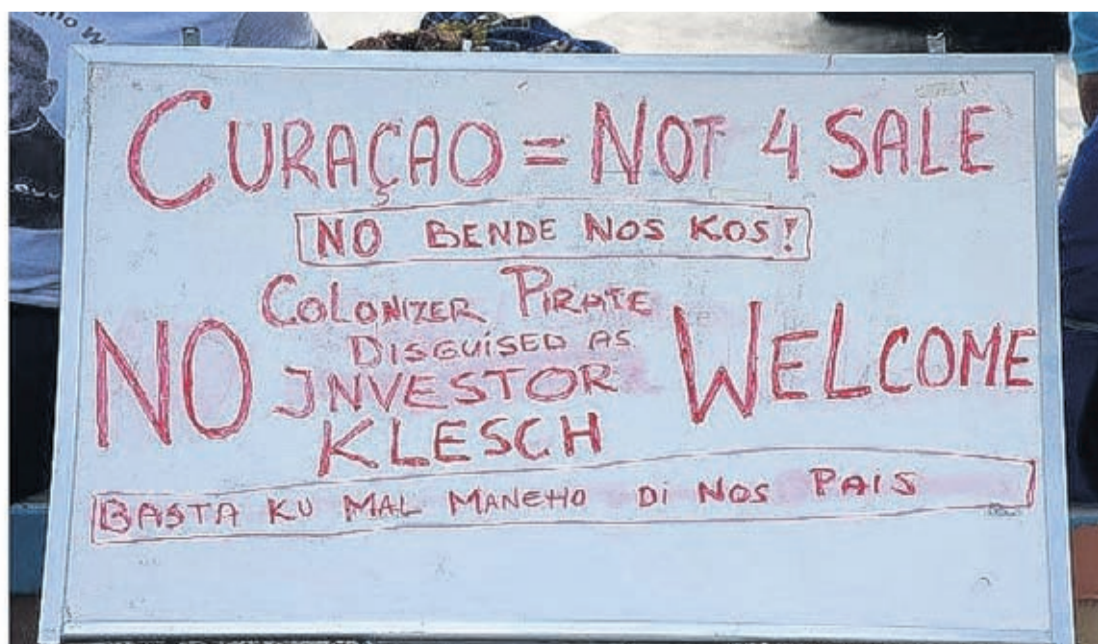 CURAÇAO = NOT 4 SALE
NO BENDE NOS KOS!
COLONIZER PIRATE
DISGUISED AS
NO INVESTOR WELCOME
KLESCH
BASTA KU MAL MANEHO DI NOS PAIS